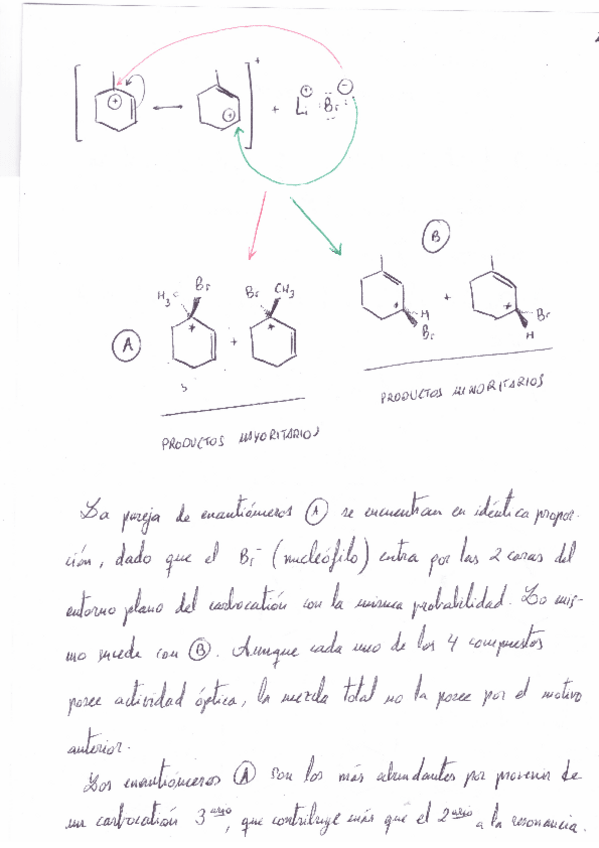 +
+
Li
⊕
Br
⊖
B
H3C
Br
Br
CH3
A
*
+
*
*
H
Br
+
*
Br
H
PRODUCTOS MAYORITARIOS
PRODUCTOS MINORITARIOS
La pareja de enantiómeros A se encuentran en idéntica propor-
ción, dado que el Br⁻ (nucleófilo) entra por las 2 caras del
entorno plano del carbocatión con la misma probabilidad. Lo mis-
mo sucede con B. Aunque cada uno de los 4 compuestos
posee actividad óptica, la mezcla total no la posee por el motivo
anterior.
Los enantiómeros A son los más abundantes por provenir de
un carbocatión 3ario, que contribuye más que el 2ario a la resonancia.